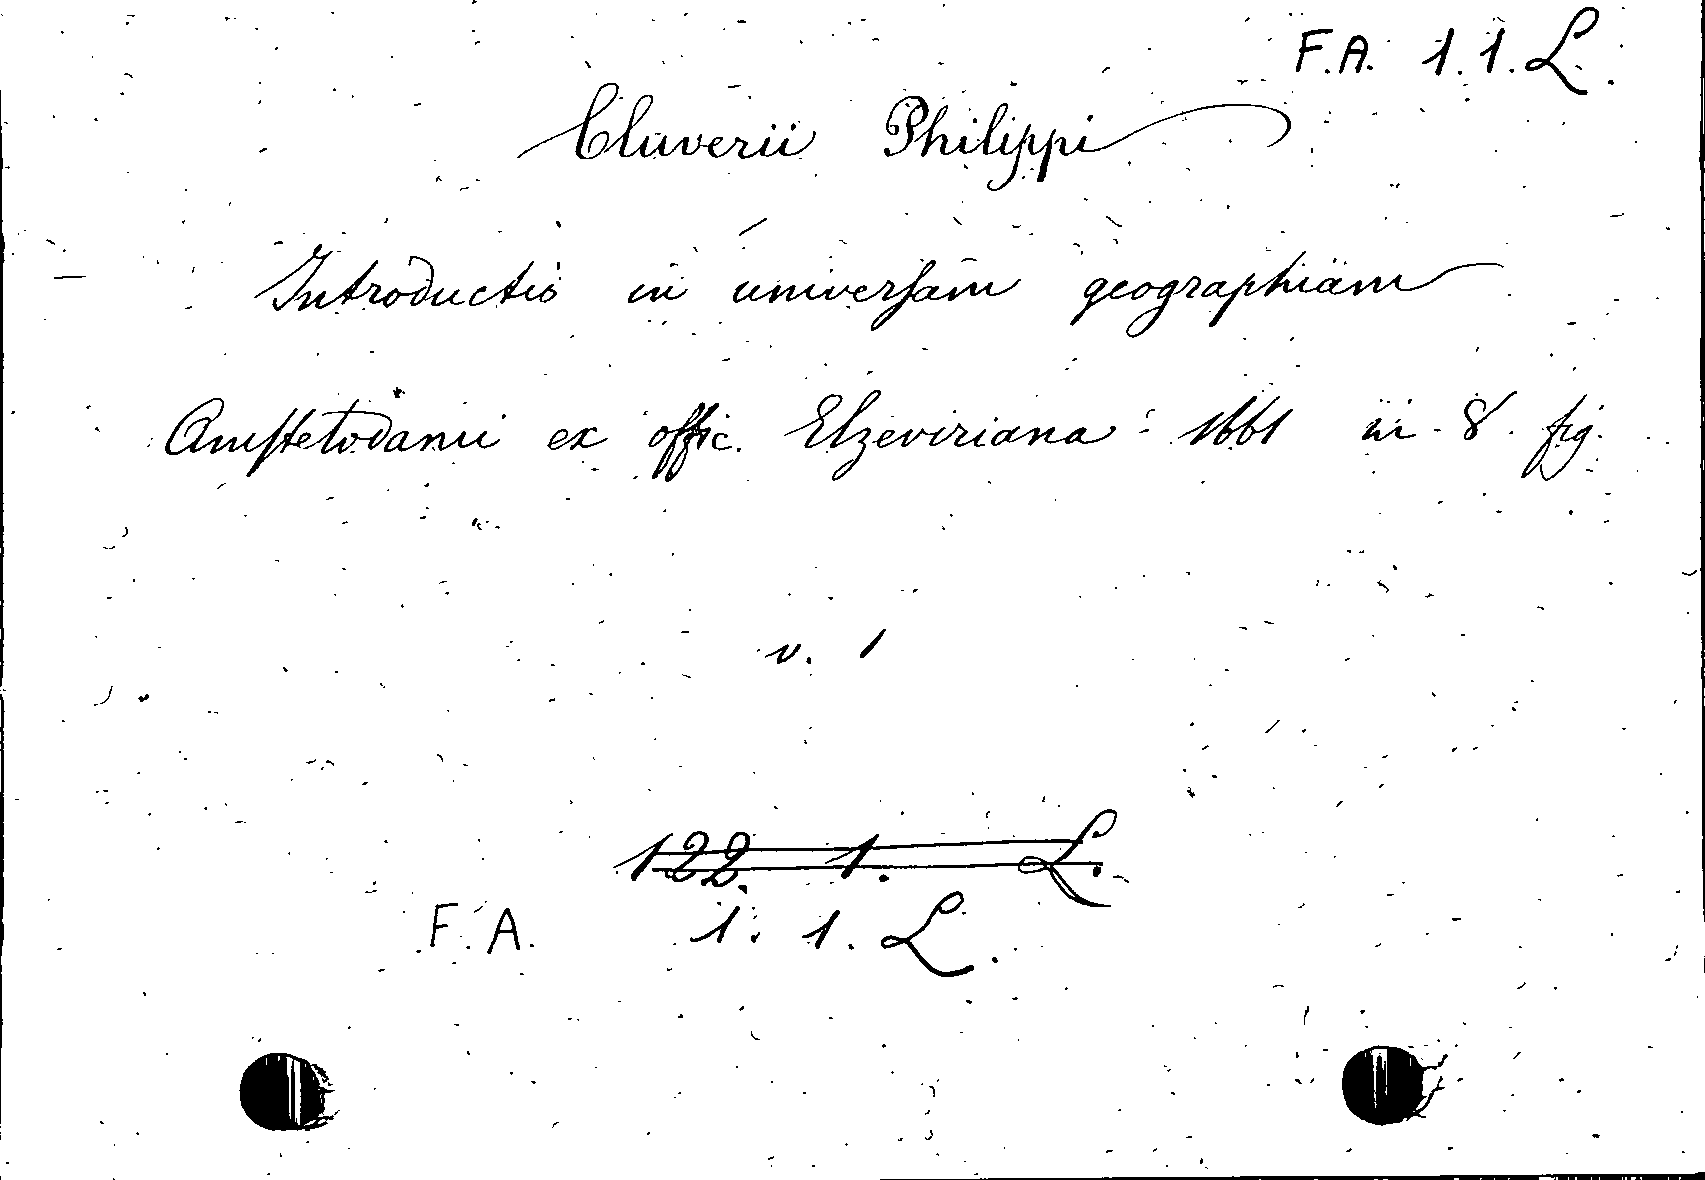 F.A. 1.1.L.
Cluverii Philippi
Introductio in universam geographiam
Amstelodami ex offic. Elzeviriana: 1661 in-8. fig.
v. 1
122. 1. L.
F.A. 1. 1. L.